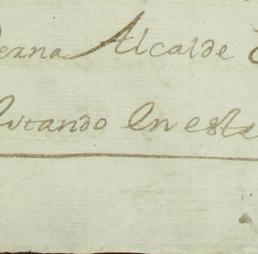 erna Alcalde
utando en este